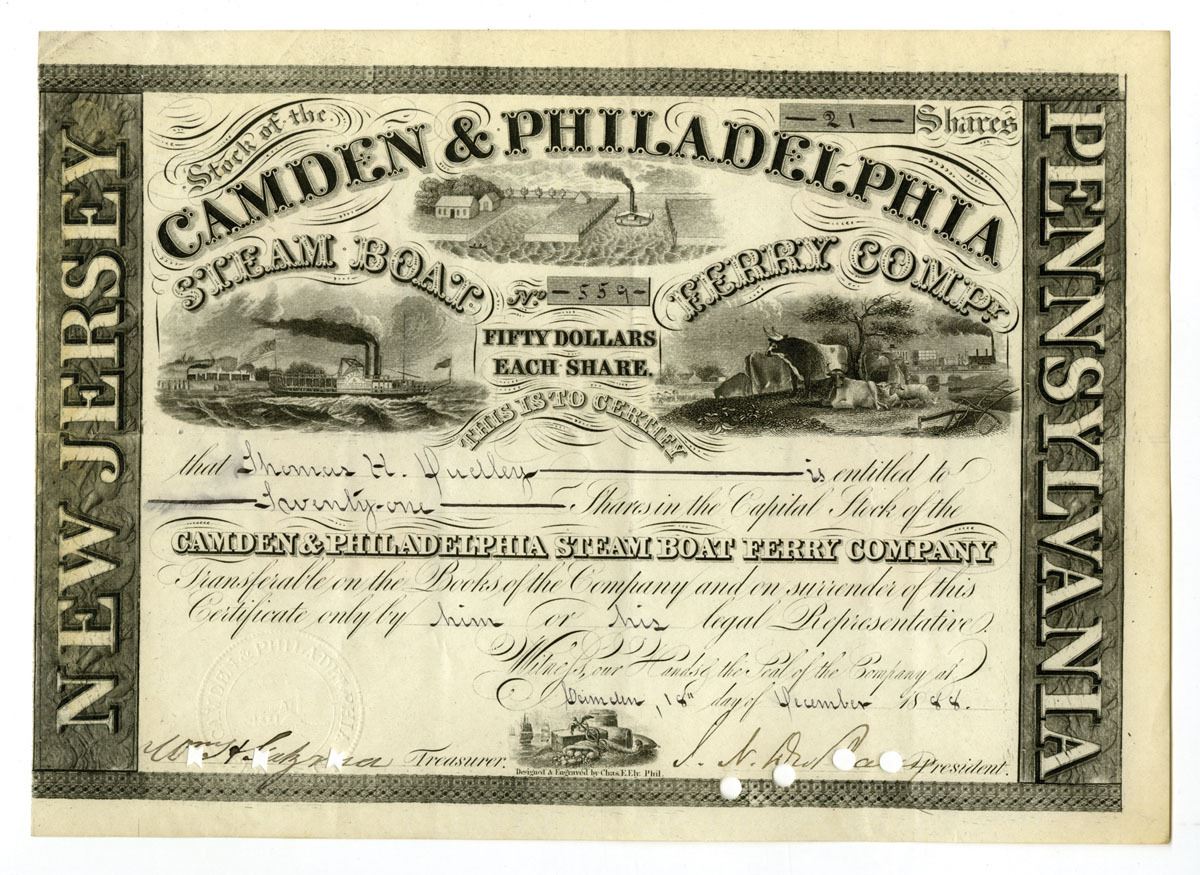 Stock of the
— 21 — Shares
CAMDEN & PHILADELPHIA
STEAM BOAT FERRY COMPY.
No. — 559 —
FIFTY DOLLARS
EACH SHARE.
THIS IS TO CERTIFY
that Thomas H. Dudley is entitled to
Twenty-one Shares in the Capital Stock of the
CAMDEN & PHILADELPHIA STEAM BOAT FERRY COMPANY
Transferable on the Books of the Company and on surrender of this
Certificate only by him or his legal Representative.
Witness our Hands & the Seal of the Company at
Camden, 18" day of December 1888.
Treasurer.
President.
Designed & Engraved by Chas. E. Ely. Phil.
NEW JERSEY
PENNSYLVANIA
CAMDEN & PHILADELPHIA